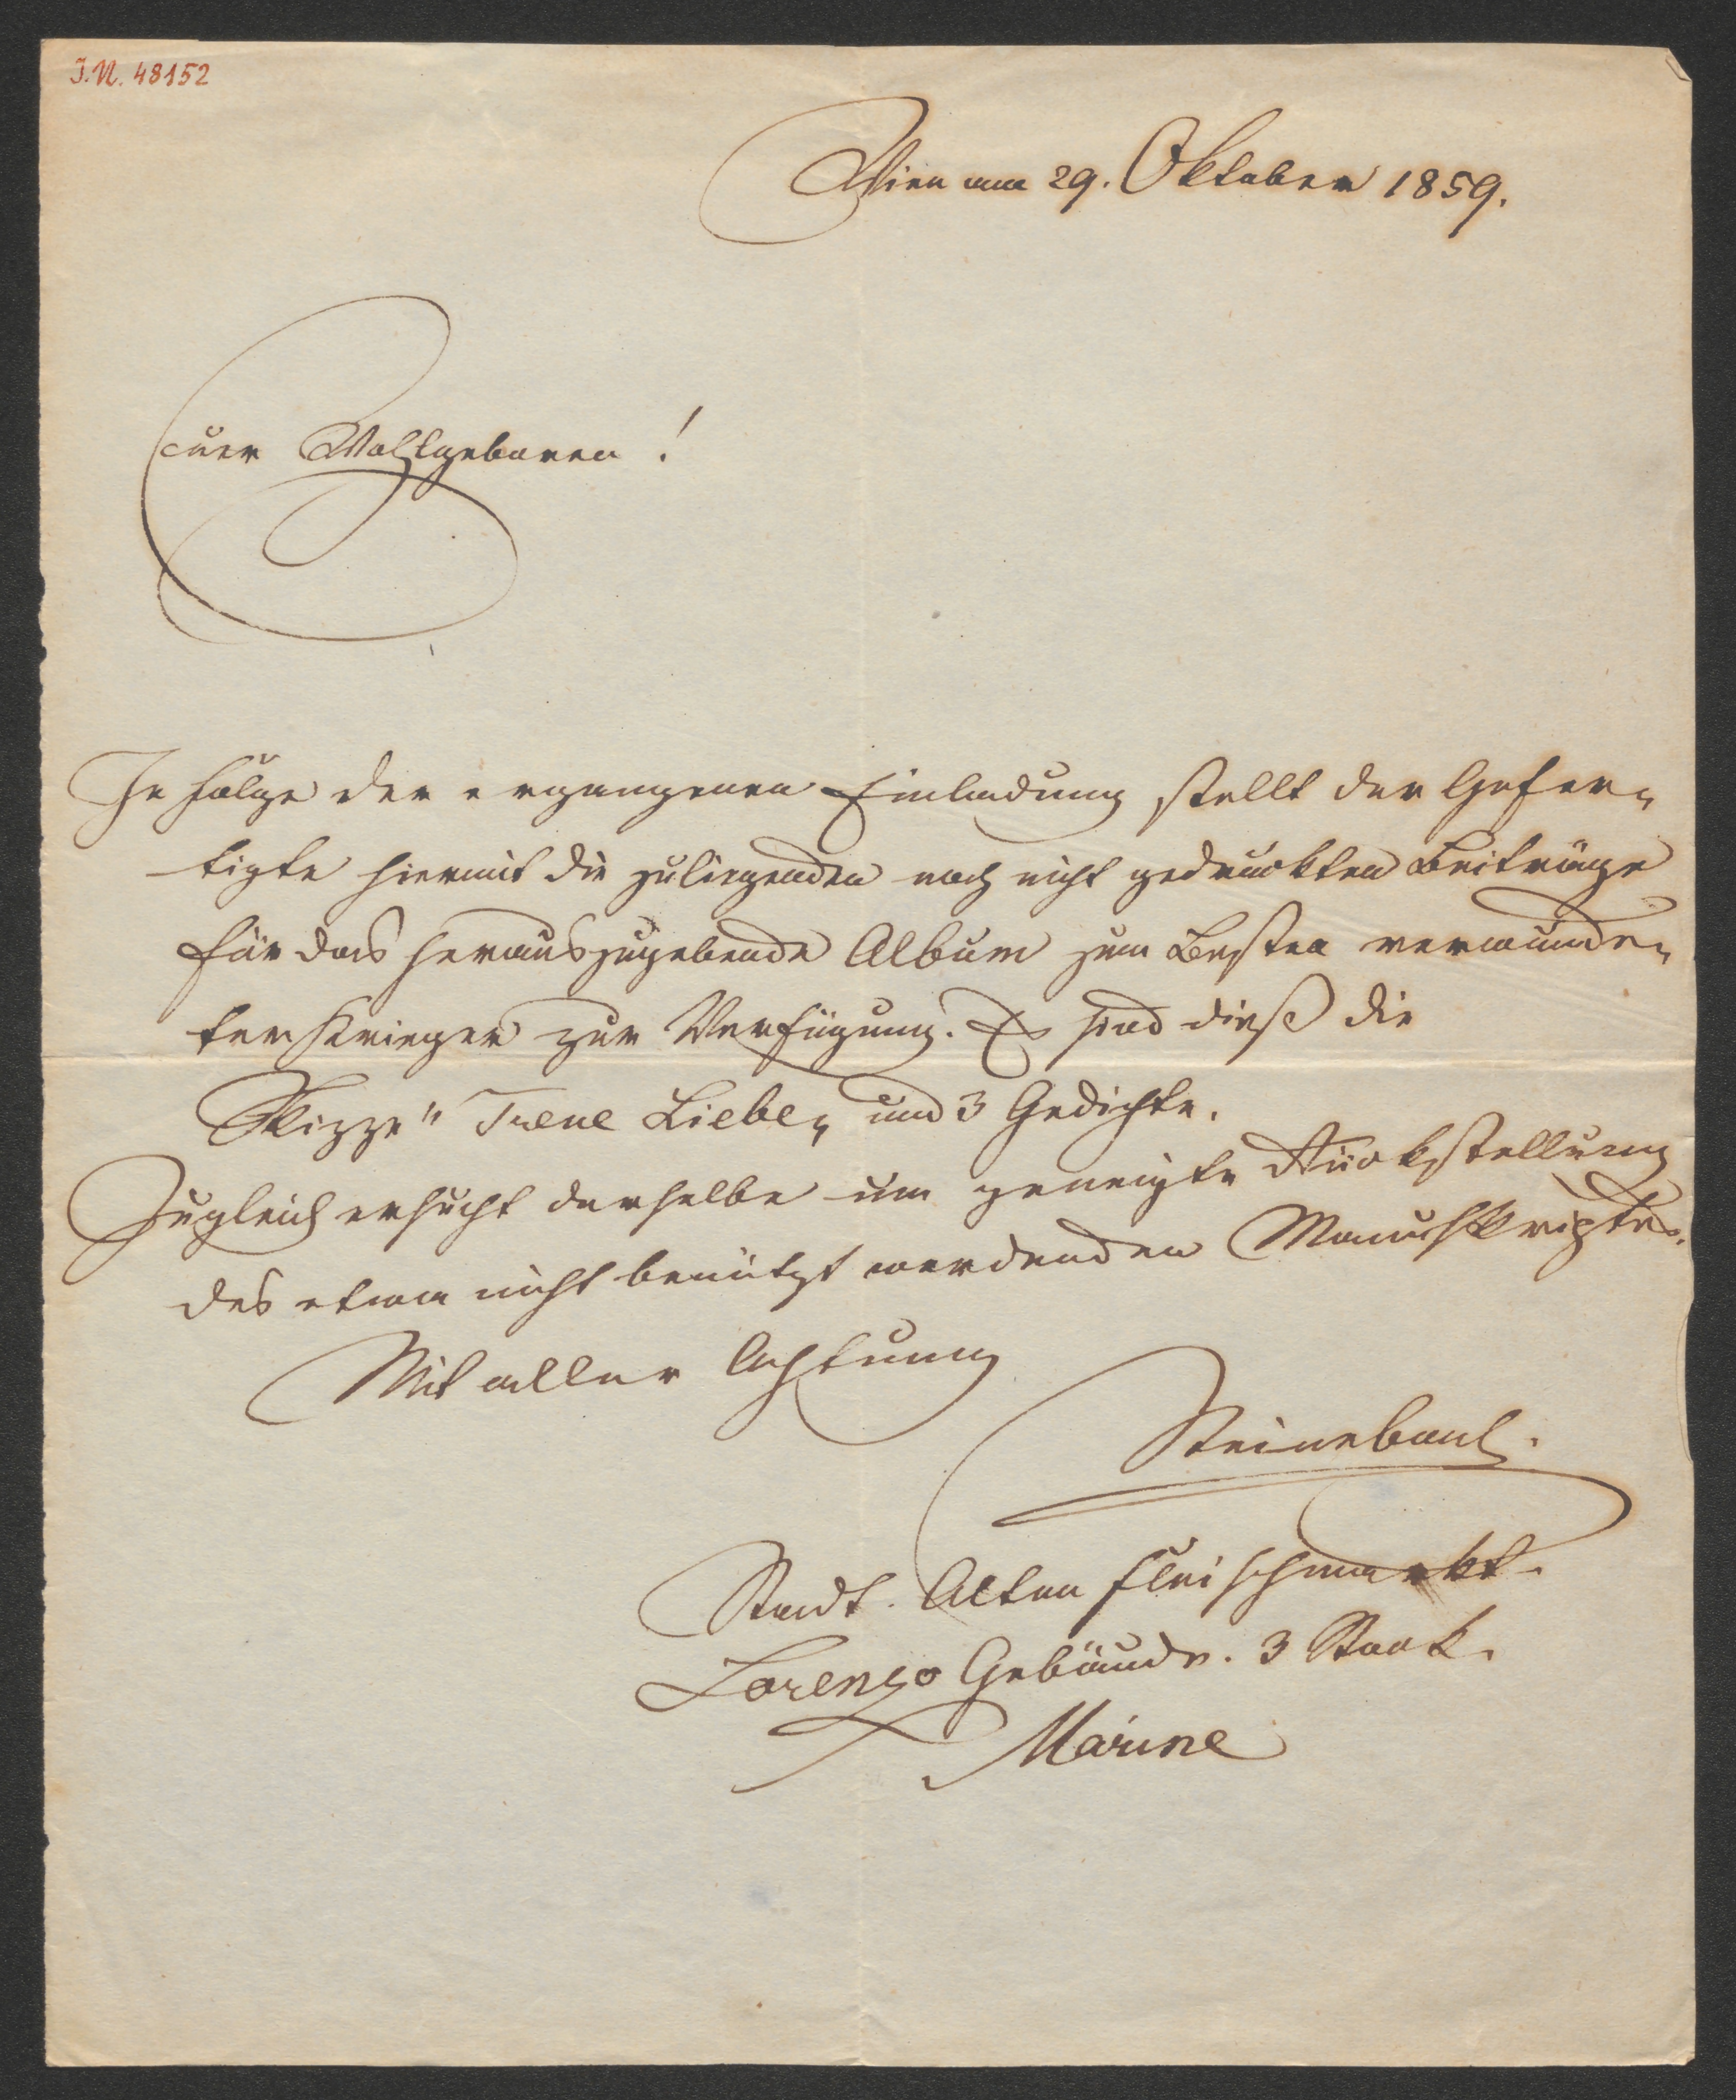 I.N. 48152
Wien am 29. Oktober 1859.
Euer Wohlgeboren!
In Folge der ergangenen Einladung stellt der Gefer-
tigte hiermit die zuliegenden noch nicht gedruckten Beiträge
für das herauszugebende Album zum Besten verwunde-
ter Krieger zur Verfügung. Es sind dieß die
Skizze "Treue Liebe" und 3 Gedichte.
Zugleich ersucht derselbe um geneigte Rückstellung
des etwa nicht benützt werdenden Manuskriptes.
Mit aller Achtung
Steinebach.
Stadt. Alten Fleischmarkt.
Lorenzo Gebäude. 3 Stock.
Marine